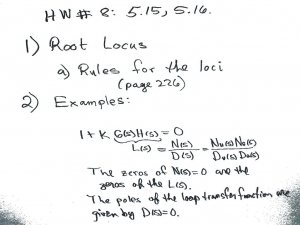 HW # 8: 5.15, 5.16.
1) Root Locus
a) Rules for the loci
(page 226)
2) Examples:
1 + K G(s)H(s) = 0
L(s) = N(s)/D(s) = NG(s)NH(s)/DG(s)DH(s)
The zeros of N(s)=0 are the
zeros of the L(s).
The poles of the loop transfer function are
given by D(s)=0.